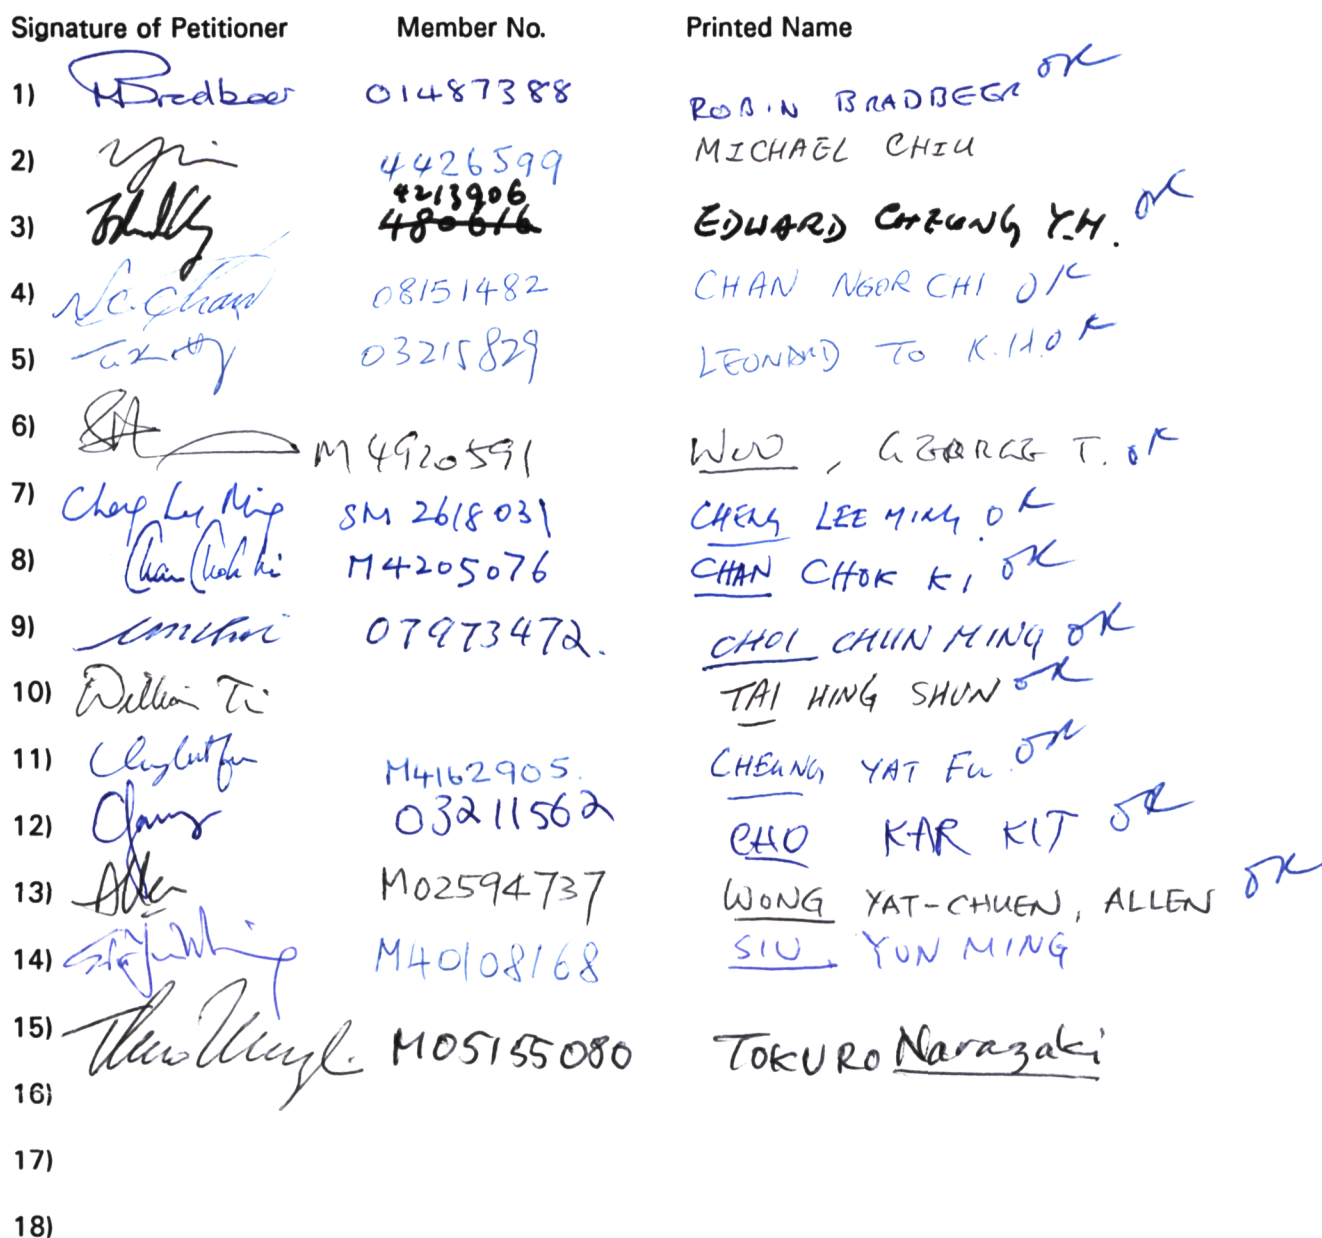 Signature of Petitioner Member No. Printed Name
1) RBradbeer 01487388 ROBIN BRADBEER OK
2) 4426599 MICHAEL CHIU
4213906
3) 480616 EDWARD CHEUNG Y.H. OK
4) N.C. Chan 08151482 CHAN NGOR CHI OK
5) 03215829 LEONARD TO K.H. OK
6) M 4920591 WOO, GEORGE T. OK
7) Cheng Lee Ming SM 2618031 CHENG LEE MING OK
8) Chan Chok Ki M4205076 CHAN CHOK KI OK
9) cmchoi 07973472. CHOI CHUN MING OK
10) William Tai TAI HING SHUN OK
11) M4162905. CHEUNG YAT FU OK
12) 03211562 CHO KAR KIT OK
13) Allen M02594737 WONG YAT-CHUEN, ALLEN OK
14) M40108168 SIU YUN MING
15) M05155080 TOKURO Narazaki
16)
17)
18)